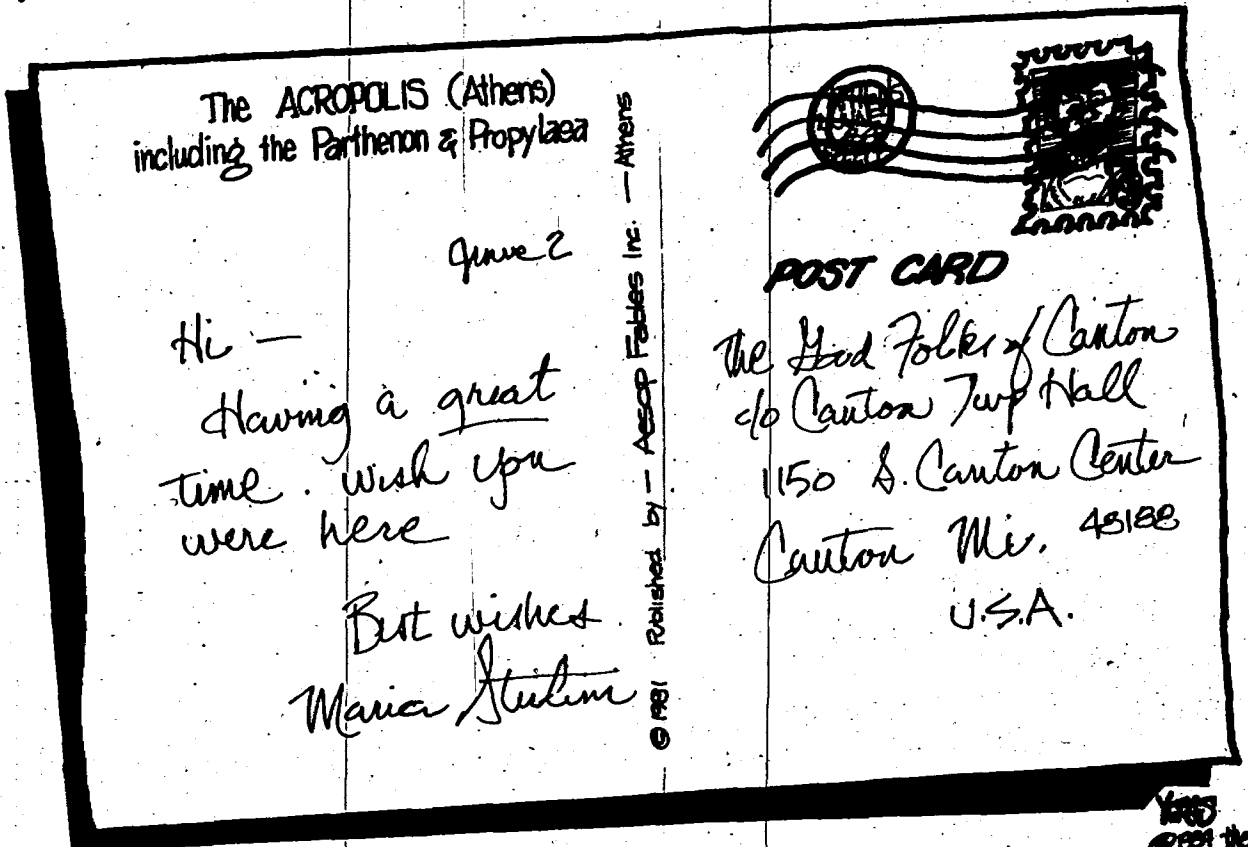 The ACROPOLIS (Athens)
including the Parthenon & Propylaea
June 2
Hi —
Having a great
time. Wish you
were here
Best wishes
Maria
© 1981 Published by — AESOP Fables Inc. — Athens
POST CARD
The Good Folks of Canton
c/o Canton Twp Hall
1150 S. Canton Center
Canton Mi. 48188
U.S.A.